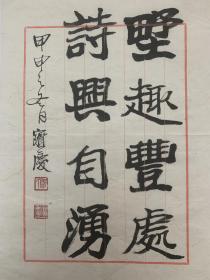 墅趣豐處
詩興自湧
甲申之冬月寶慶